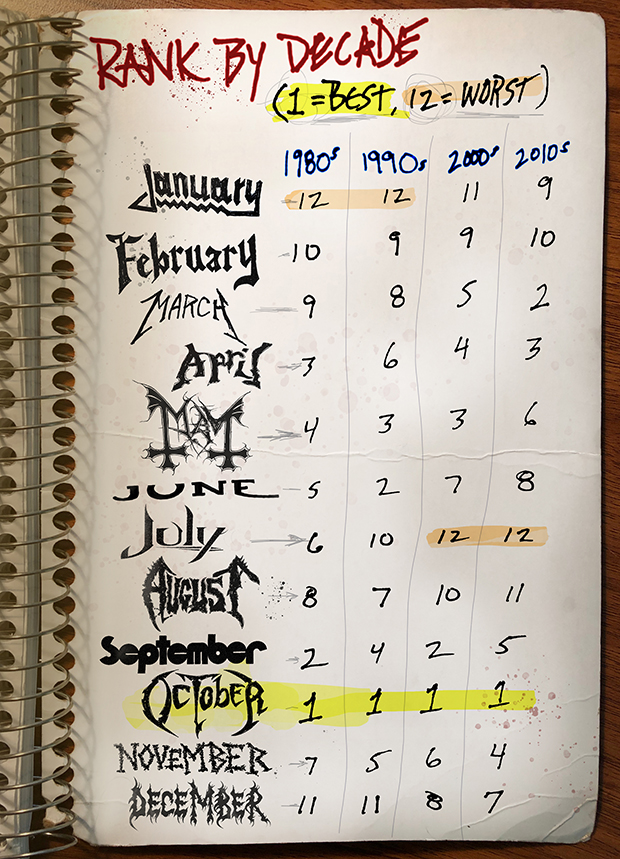 RANK BY DECADE
(1=BEST, 12=WORST)
1980s 1990s 2000s 2010s
January 12 12 11 9
February 10 9 9 10
MARCH 9 8 5 2
April 3 6 4 3
MAY 4 3 3 6
JUNE 5 2 7 8
July 6 10 12 12
AUGUST 8 7 10 11
September 2 4 2 5
OCTOBER 1 1 1 1
NOVEMBER 7 5 6 4
DECEMBER 11 11 8 7